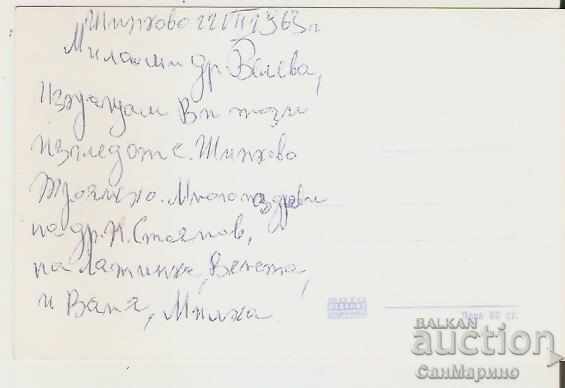 Шипково 22 III 1963 г.
Милата ми др. Велева,
Изпращам Ви този
изглед от с. Шипково
Троянско. Много поздрави
на др. Н. Стоянов,
на Латинка, Венета,
и Ваня, Милка
Цена 60 ст.
BALKAN
auction
СанМарино